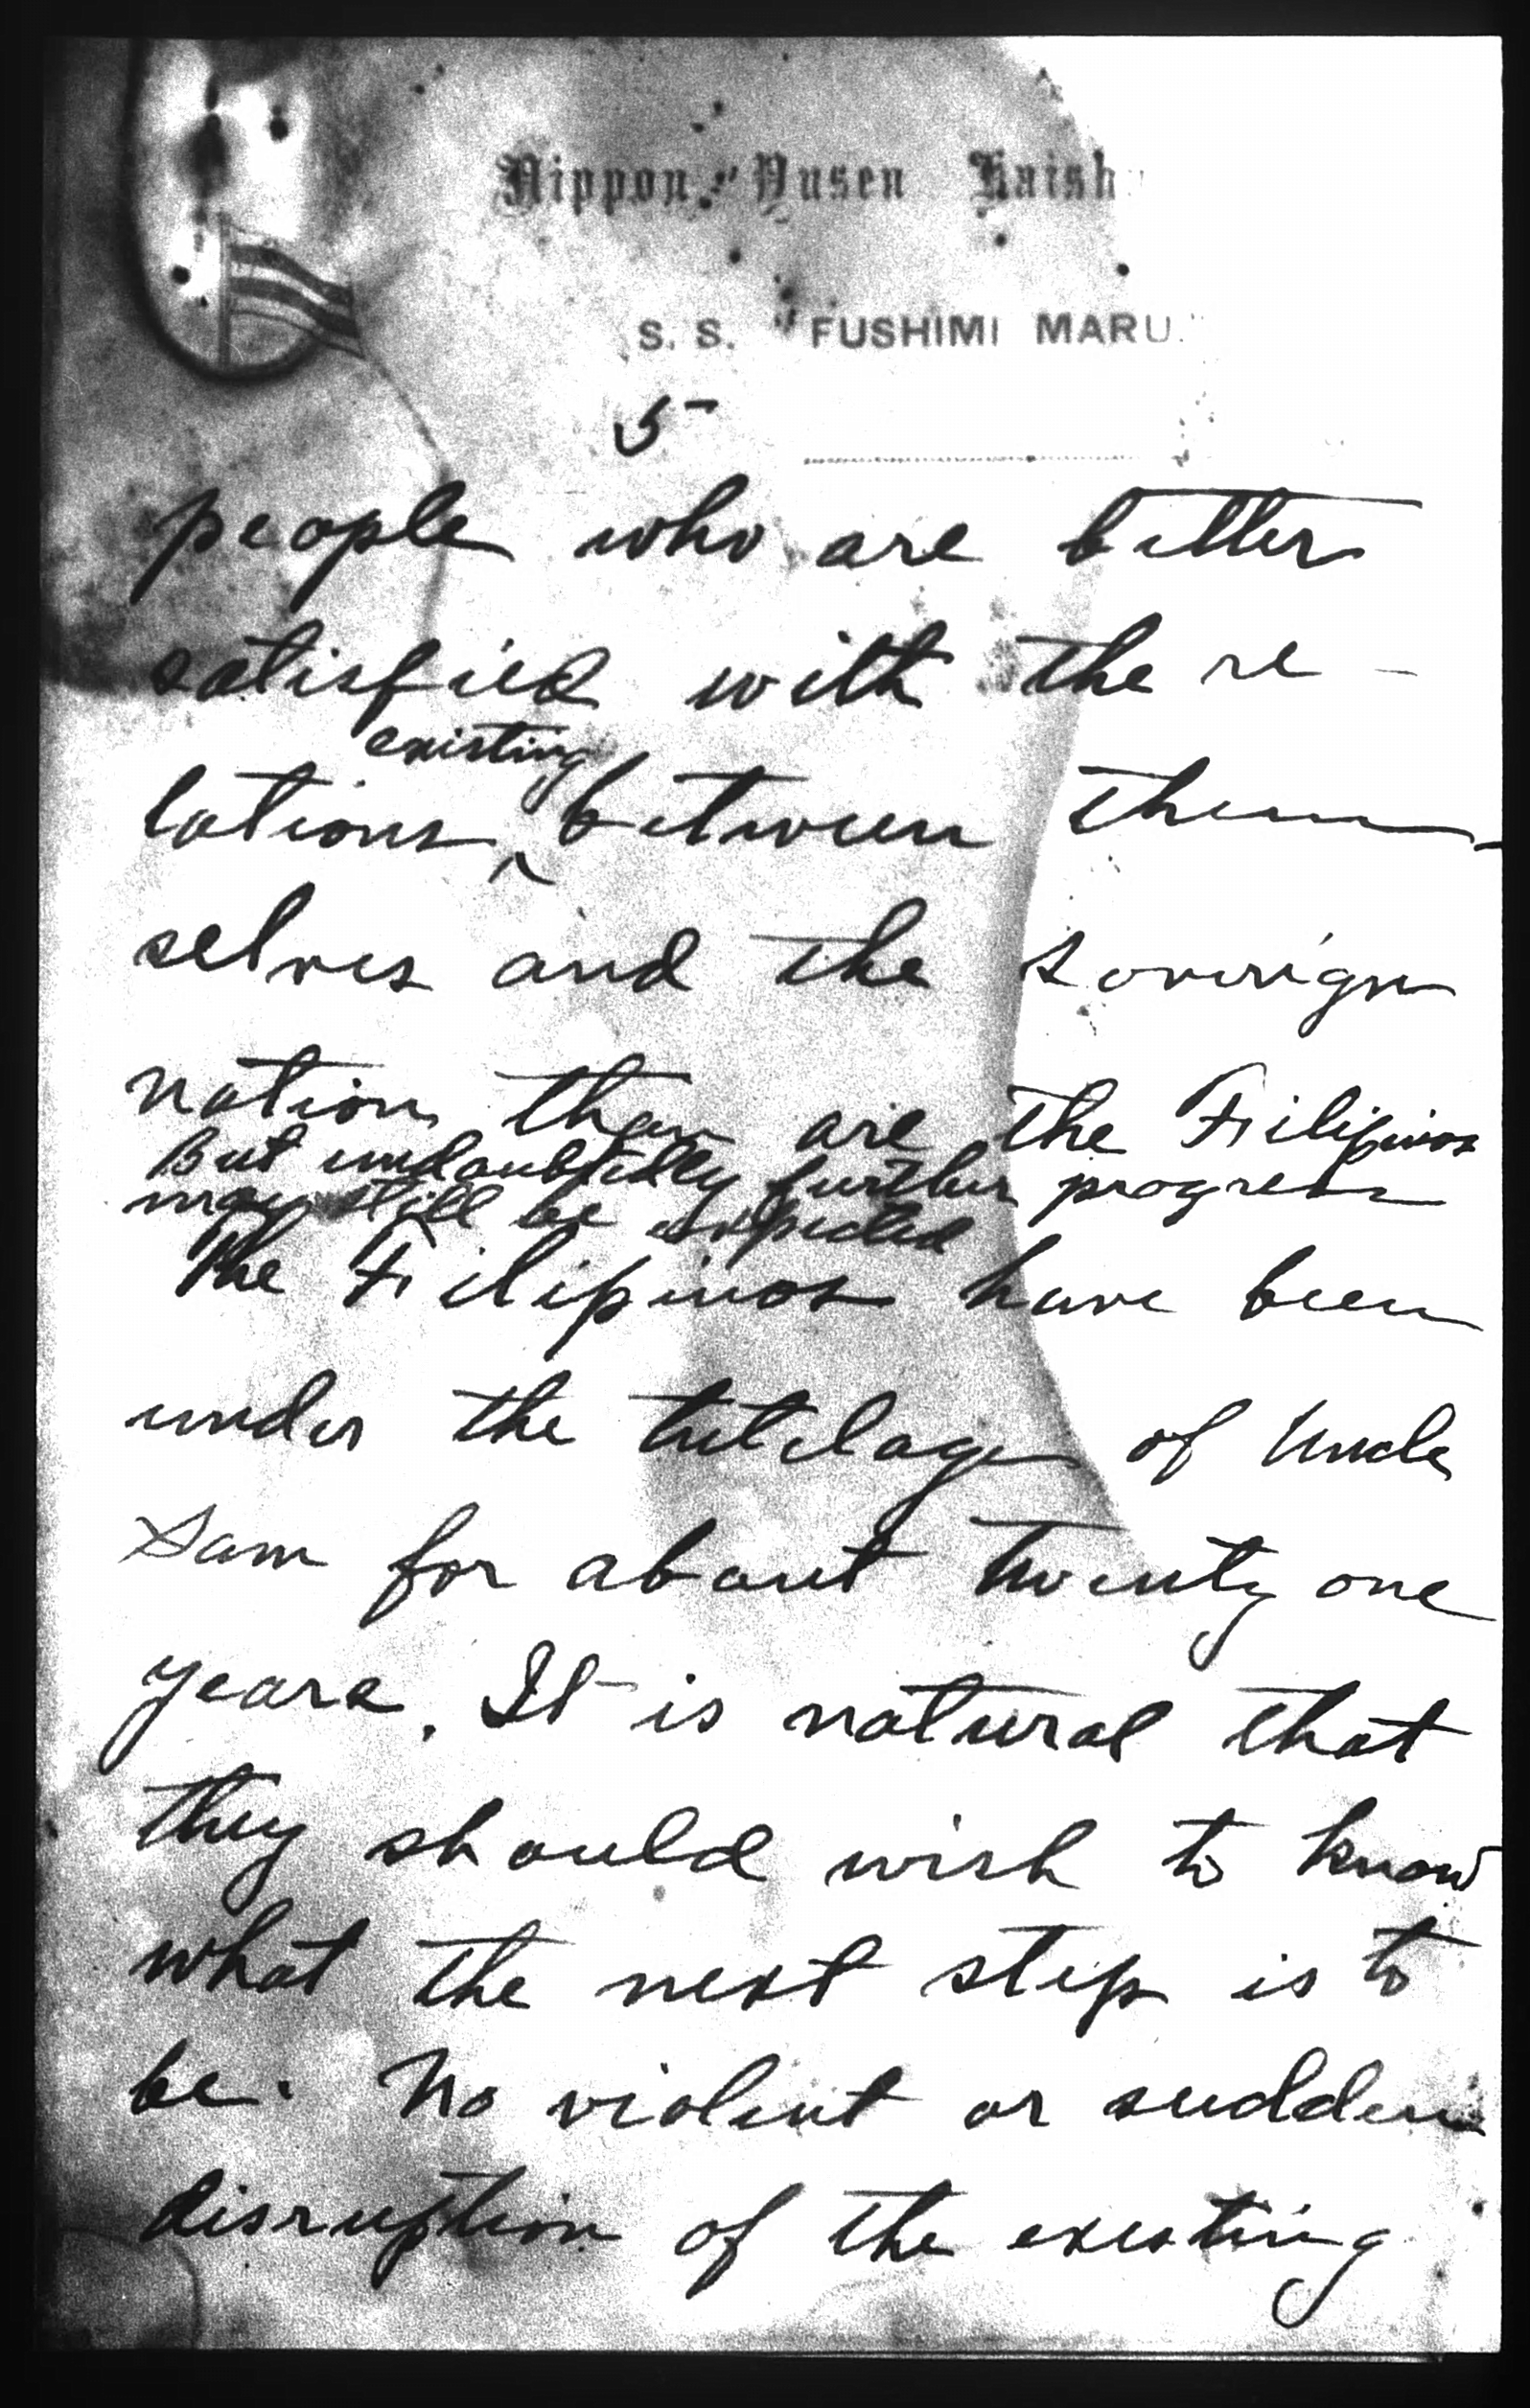 Nippon Yusen Kaish
S. S. "FUSHIMI MARU."
5
people who are better
satisfied with the re-
existing
lations ^ between them-
selves and the soverign
nation than are the Filipinos
But undoubtedly further progress
may still be expected
The Filipinos have been
under the tutelage of Uncle
Sam for about twenty one
years. It is natural that
they should wish to know
what the next step is to
be. No violent or sudden
disruption of the existing